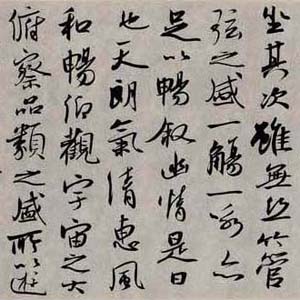 坐其次雖無絲竹管
弦之盛一觴一詠亦
足以暢敘幽情是日
也天朗氣清惠風
和暢仰觀宇宙之大
俯察品類之盛所以遊